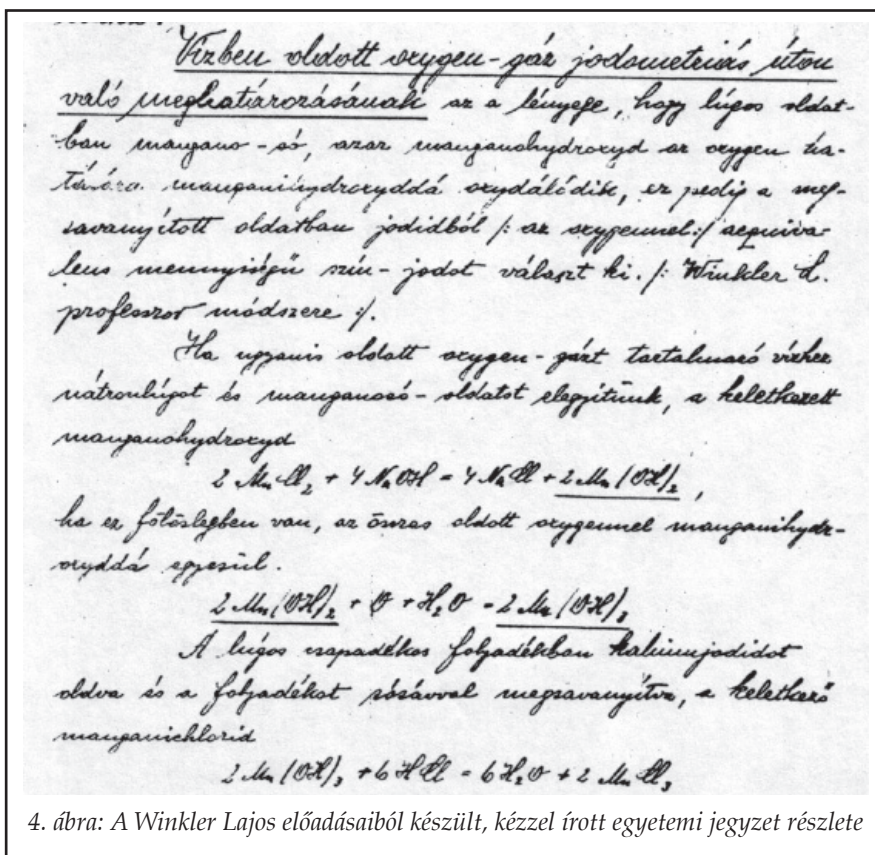 Vízben oldott oxygen-gáz jodometriás úton
való meghatározásának az a lényege, hogy lúgos oldat-
ban mangano-só, azaz manganohydroxyd az oxygen ha-
tására manganihydroxyddá oxydálódik, ez pedig a meg-
savanyított oldatban jodidból /: az oxygennel :/ aequiva-
lens mennyiségű szín-jodot választ ki. /: Winkler L.
professzor módszere :/.
Ha ugyanis oldott oxygen-gázt tartalmazó vízhez
nátronlúgot és manganosó-oldatot elegyítünk, a keletkezett
manganohydroxyd
2 MnCl₂ + 4 NaOH = 4 NaCl + 2 Mn(OH)₂,
ha ez fölöslegben van, az összes oldott oxygennel manganihydr-
oxyddá egyesül.
2 Mn(OH)₂ + O + H₂O = 2 Mn(OH)₃
A lúgos csapadékos folyadékban kaliumjodidot
oldva és a folyadékot sósavval megsavanyítva, a keletkező
manganichlorid
2 Mn(OH)₃ + 6 HCl = 6 H₂O + 2 MnCl₃
4. ábra: A Winkler Lajos előadásaiból készült, kézzel írott egyetemi jegyzet részlete